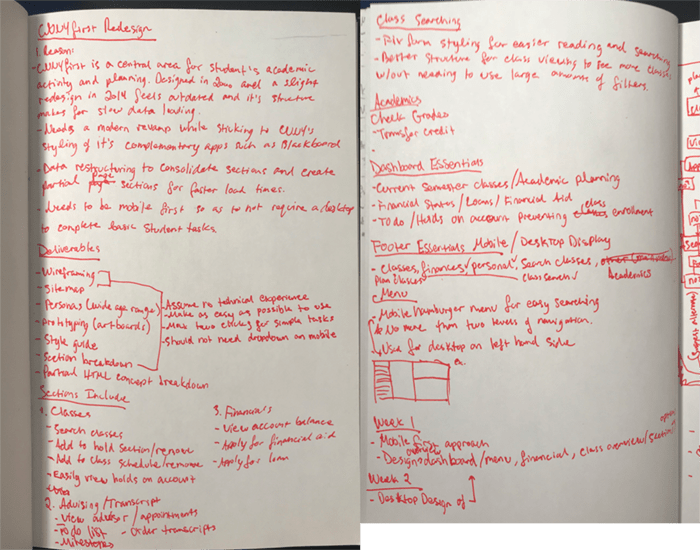 CUNYfirst Redesign
1. Reason:
- CUNYfirst is a central area for student's academic
activity and planning. Designed in 2000 and a slight
redesign in 2014 feels outdated and it's structure
makes for slow data loading.
- Needs a modern revamp while sticking to CUNY's
styling of it's complementary apps such as Blackboard
- Data restructuring to consolidate sections and create
partial page sections for faster load times.
- Needs to be mobile first so as to not require a desktop
to complete basic student tasks.
Deliverables
- Wireframing
- Sitemap
- Personas (wide age range)
- prototyping (artboards)
- Style guide
- Section breakdown
- Partial HTML concept breakdown
- Assume no technical experience
- Make as easy as possible to use
- Max two clicks for simple tasks
- Should not need dropdown on mobile
Sections Include
1. Classes
- Search classes
- Add to hold section/remove
- Add to class schedule/remove
- Easily view holds on account
2. Advising/Transcript
- View advisor/appointments
- To do list
- Order transcripts
- Milestones
3. Financials
- View account balance
- Apply for financial aid
- Apply for loan
Class Searching
- Fix form styling for easier reading and searching
- Better structure for class viewing to see more classes
w/out needing to use large amounts of filters.
Academics
Check Grades
- Transfer credit
-
Dashboard Essentials
- Current Semester Classes/Academic planning
- Financial Status/Loans/Financial Aid
- To do/Holds on account preventing class enrollment
Footer Essentials Mobile/Desktop Display
- Classes, finances, personal, Search classes,
Plan Classes Class Search Academics
Menu
- Mobile hamburger menu for easy searching
- No more than two levels of navigation.
Use for desktop on left hand side
ex.
Week 1
- Mobile first approach
- Design dashboard/menu, financial, class overview/section
overview
Week 2
- Desktop Design of